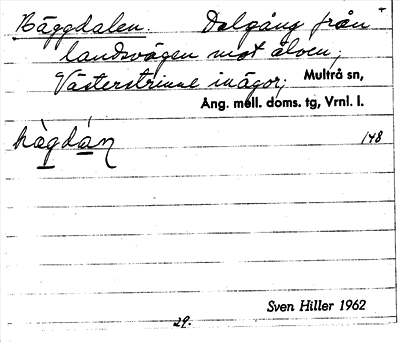 Häggdalen. Dalgång från
landsvägen mot älven,
Västerstrinne inägor; Multrå sn,
Ång. mell. doms. tg, Vrnl. l.
148
Sven Hiller 1962
29.